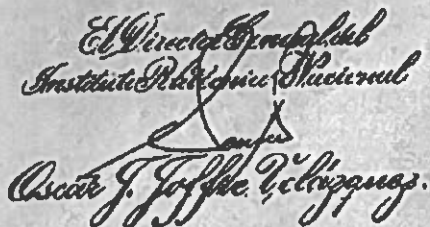 El Director General del
Instituto Politécnico Nacional
Oscar J. Joffre Velázquez.